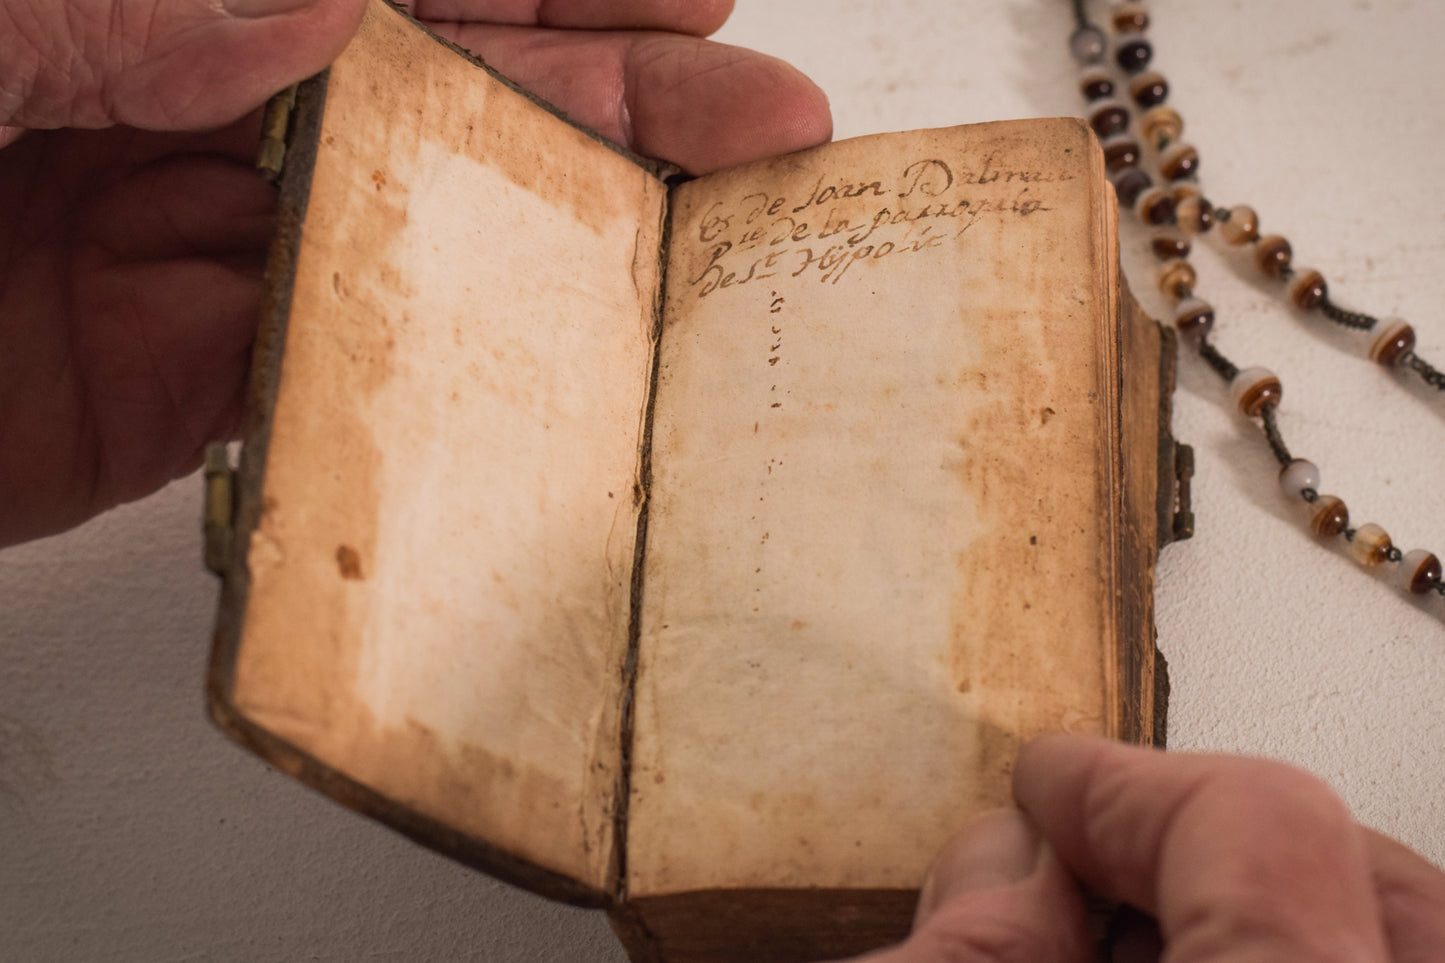 Es de Joan Dalmau
Pre de la parroquia
de St Hypolit